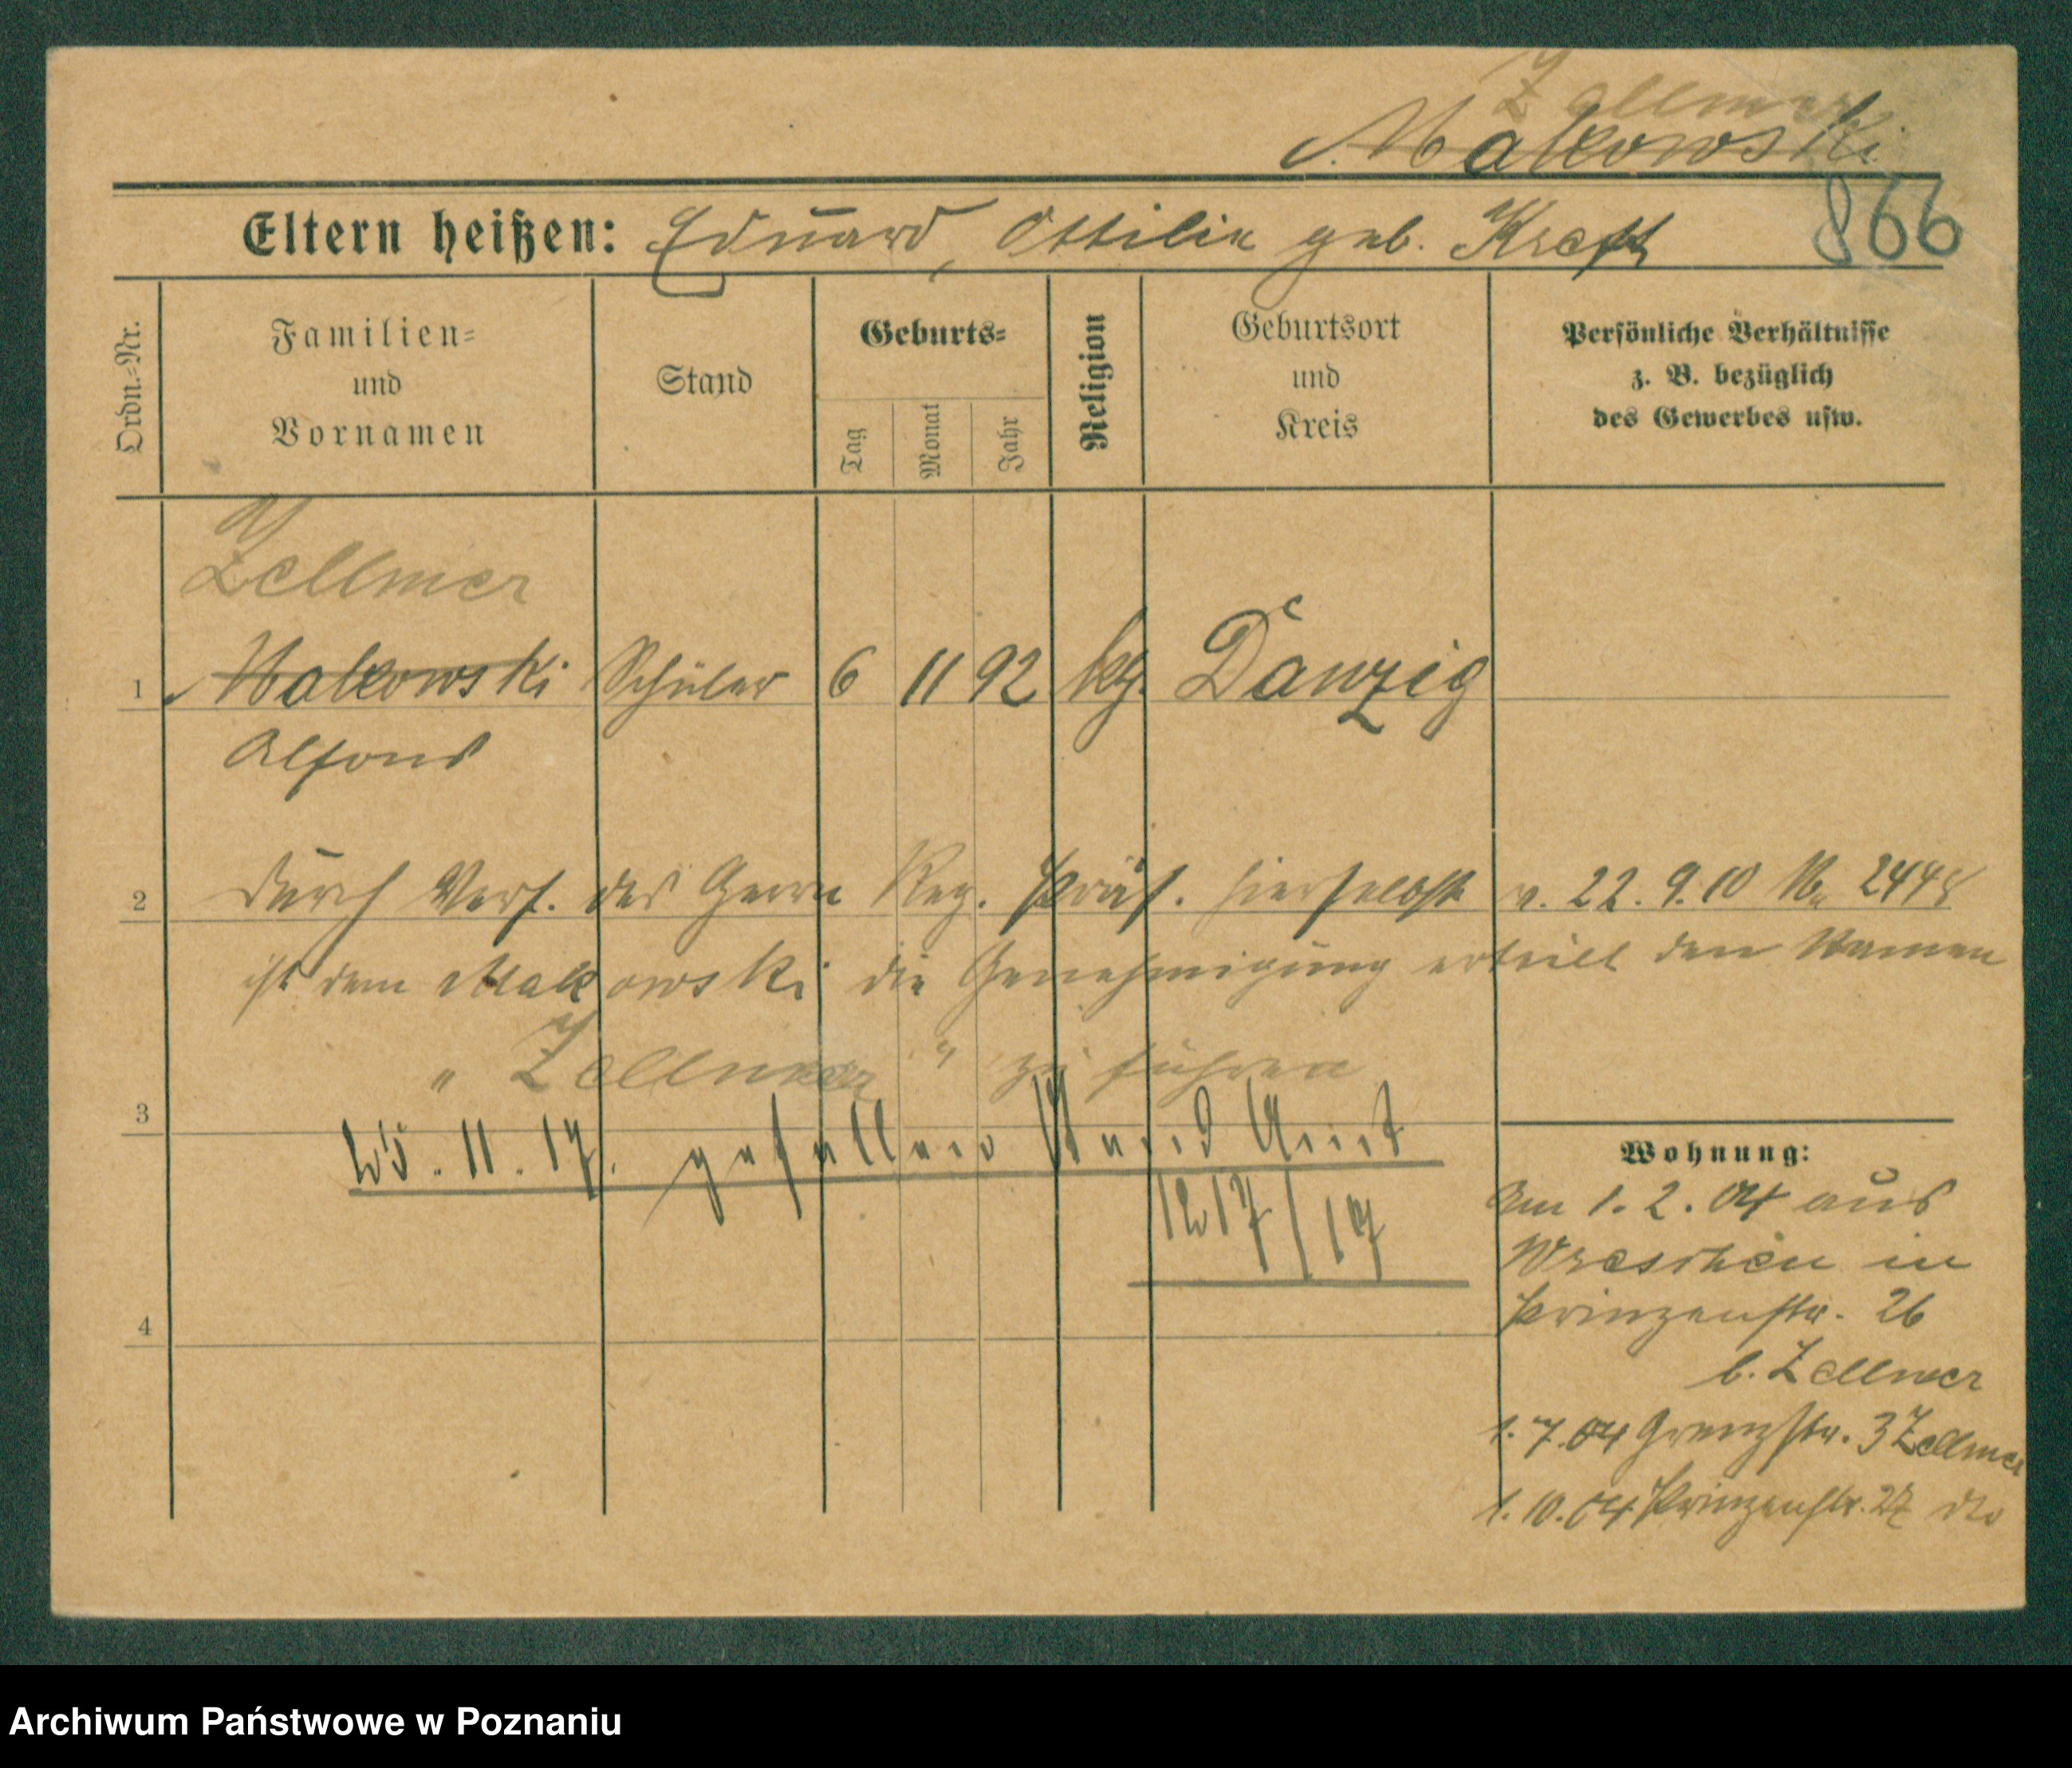 Zellmer
Makowski
866
Eltern heißen: Eduard, Ottilie geb. Kraft
Ordn.-Nr.
Familien-
und
Vornamen
Stand
Geburts-
Tag
Monat
Jahr
Religion
Geburtsort
und
Kreis
Persönliche Verhältnisse
z. B. bezüglich
des Gewerbes usw.
Zellmer
1 Makowski Schüler 6 11 92 kg. Danzig
Alfons
2 Durch Verf. des Herrn Reg. Präs. hierselbst v. 22.9.10 No 2448
ist dem Makowski die Genehmigung erteilt den Namen
„ Zellmer " zu führen
3
25.11.17. gefallen Stand Amt
1217/17
4
Wohnung:
Am 1.2.04 aus
Wreschen in
Prinzenstr. 26
b. Zellmer
1.7.04 Grenzstr. 3 Zellmer
1.10.04 Prinzenstr. 27 dto
Archiwum Państwowe w Poznaniu